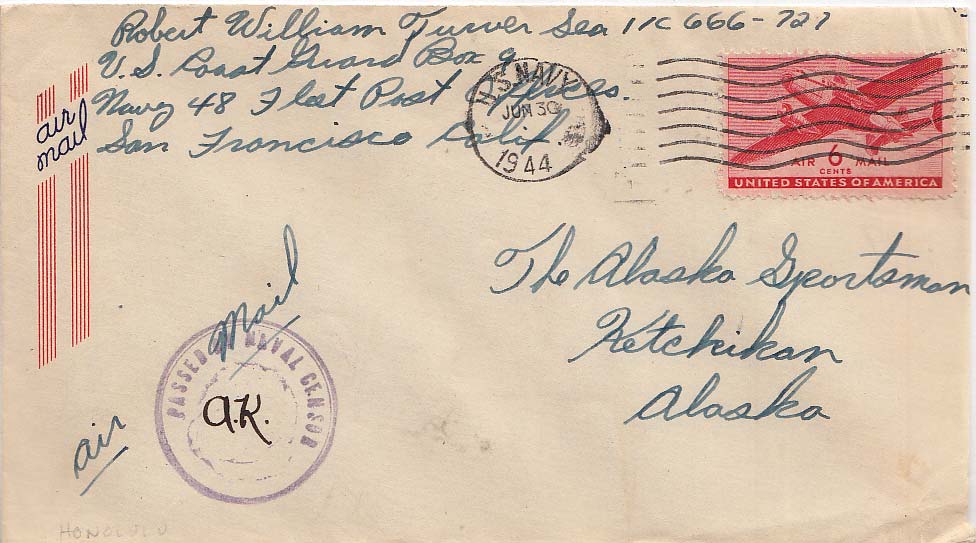 Robert William Turver Sea 1/C 666-727
U.S. Coast Guard Box 9
Navy 48 Fleet Post Offices.
San Francisco Calif.
air
mail
U.S. NAVY
JUN 30
1944
AIR 6 MAIL
CENTS
UNITED STATES OF AMERICA
The Alaska Sportsman
Ketchikan
Alaska
air Mail
PASSED NAVAL CENSOR
A.K.
HONOLULU